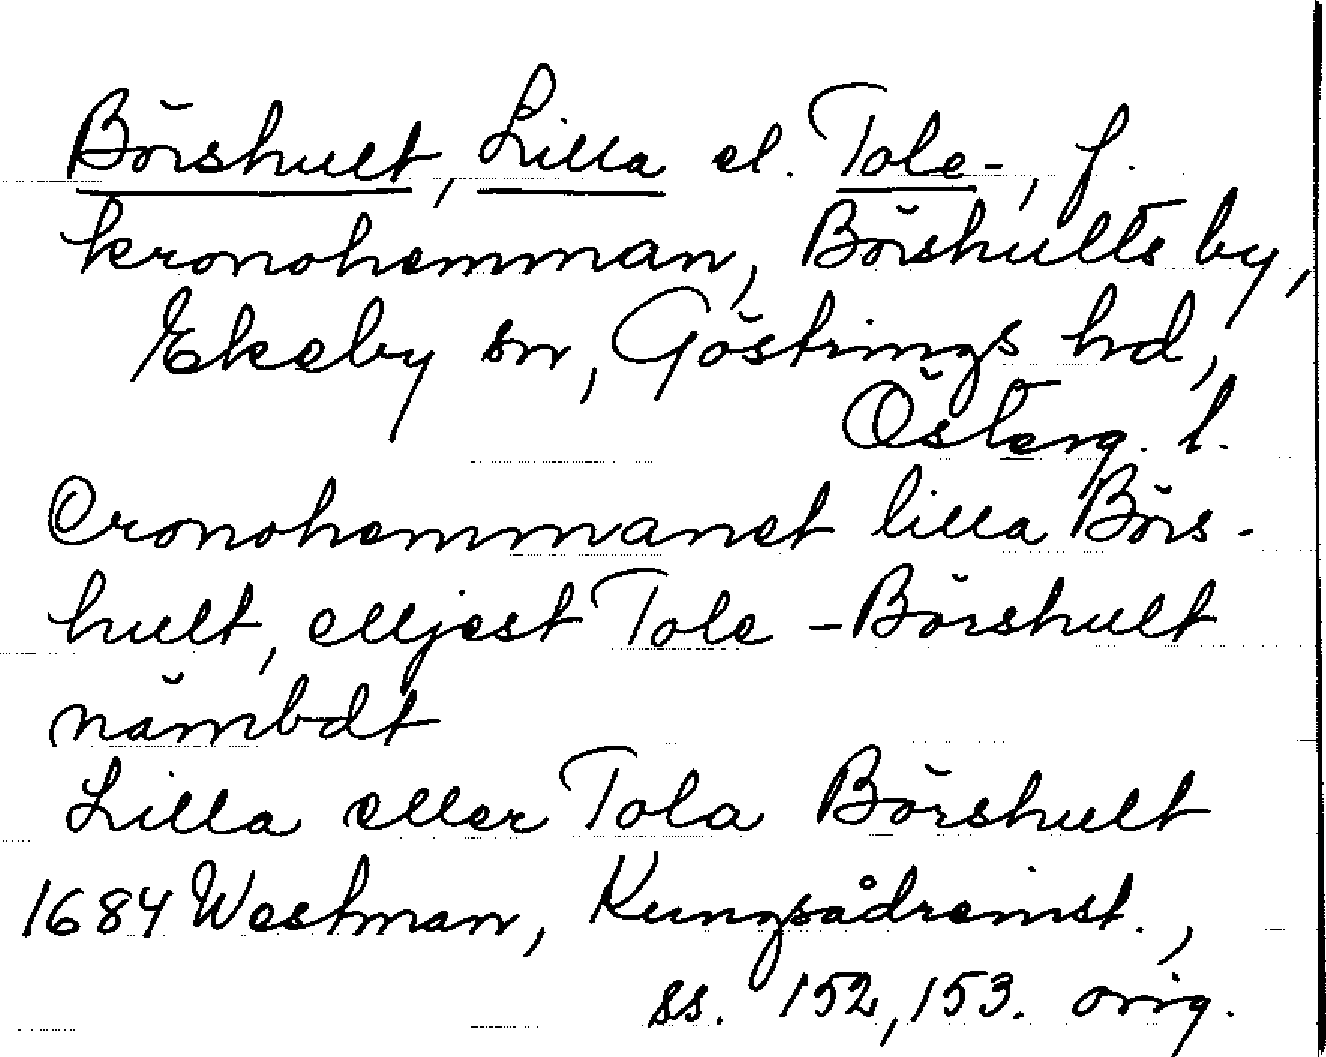 Börshult, Lilla el. Tole-, f.
kronohemman, Börshults by,
Ekeby sn, Göstrings hd,
Österg. l.
Cronohemmanet lilla Börs-
hult, elljest Tole - Börshult
nämbdt
Lilla eller Tola Börshult
1684 Westman, Kungsådreinst.,
ss. 152, 153. orig.